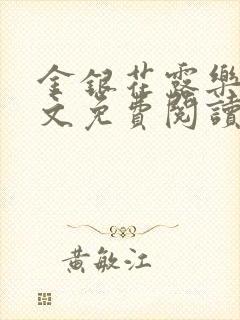 金銀花露樂
文免費閱讀
黃敏江